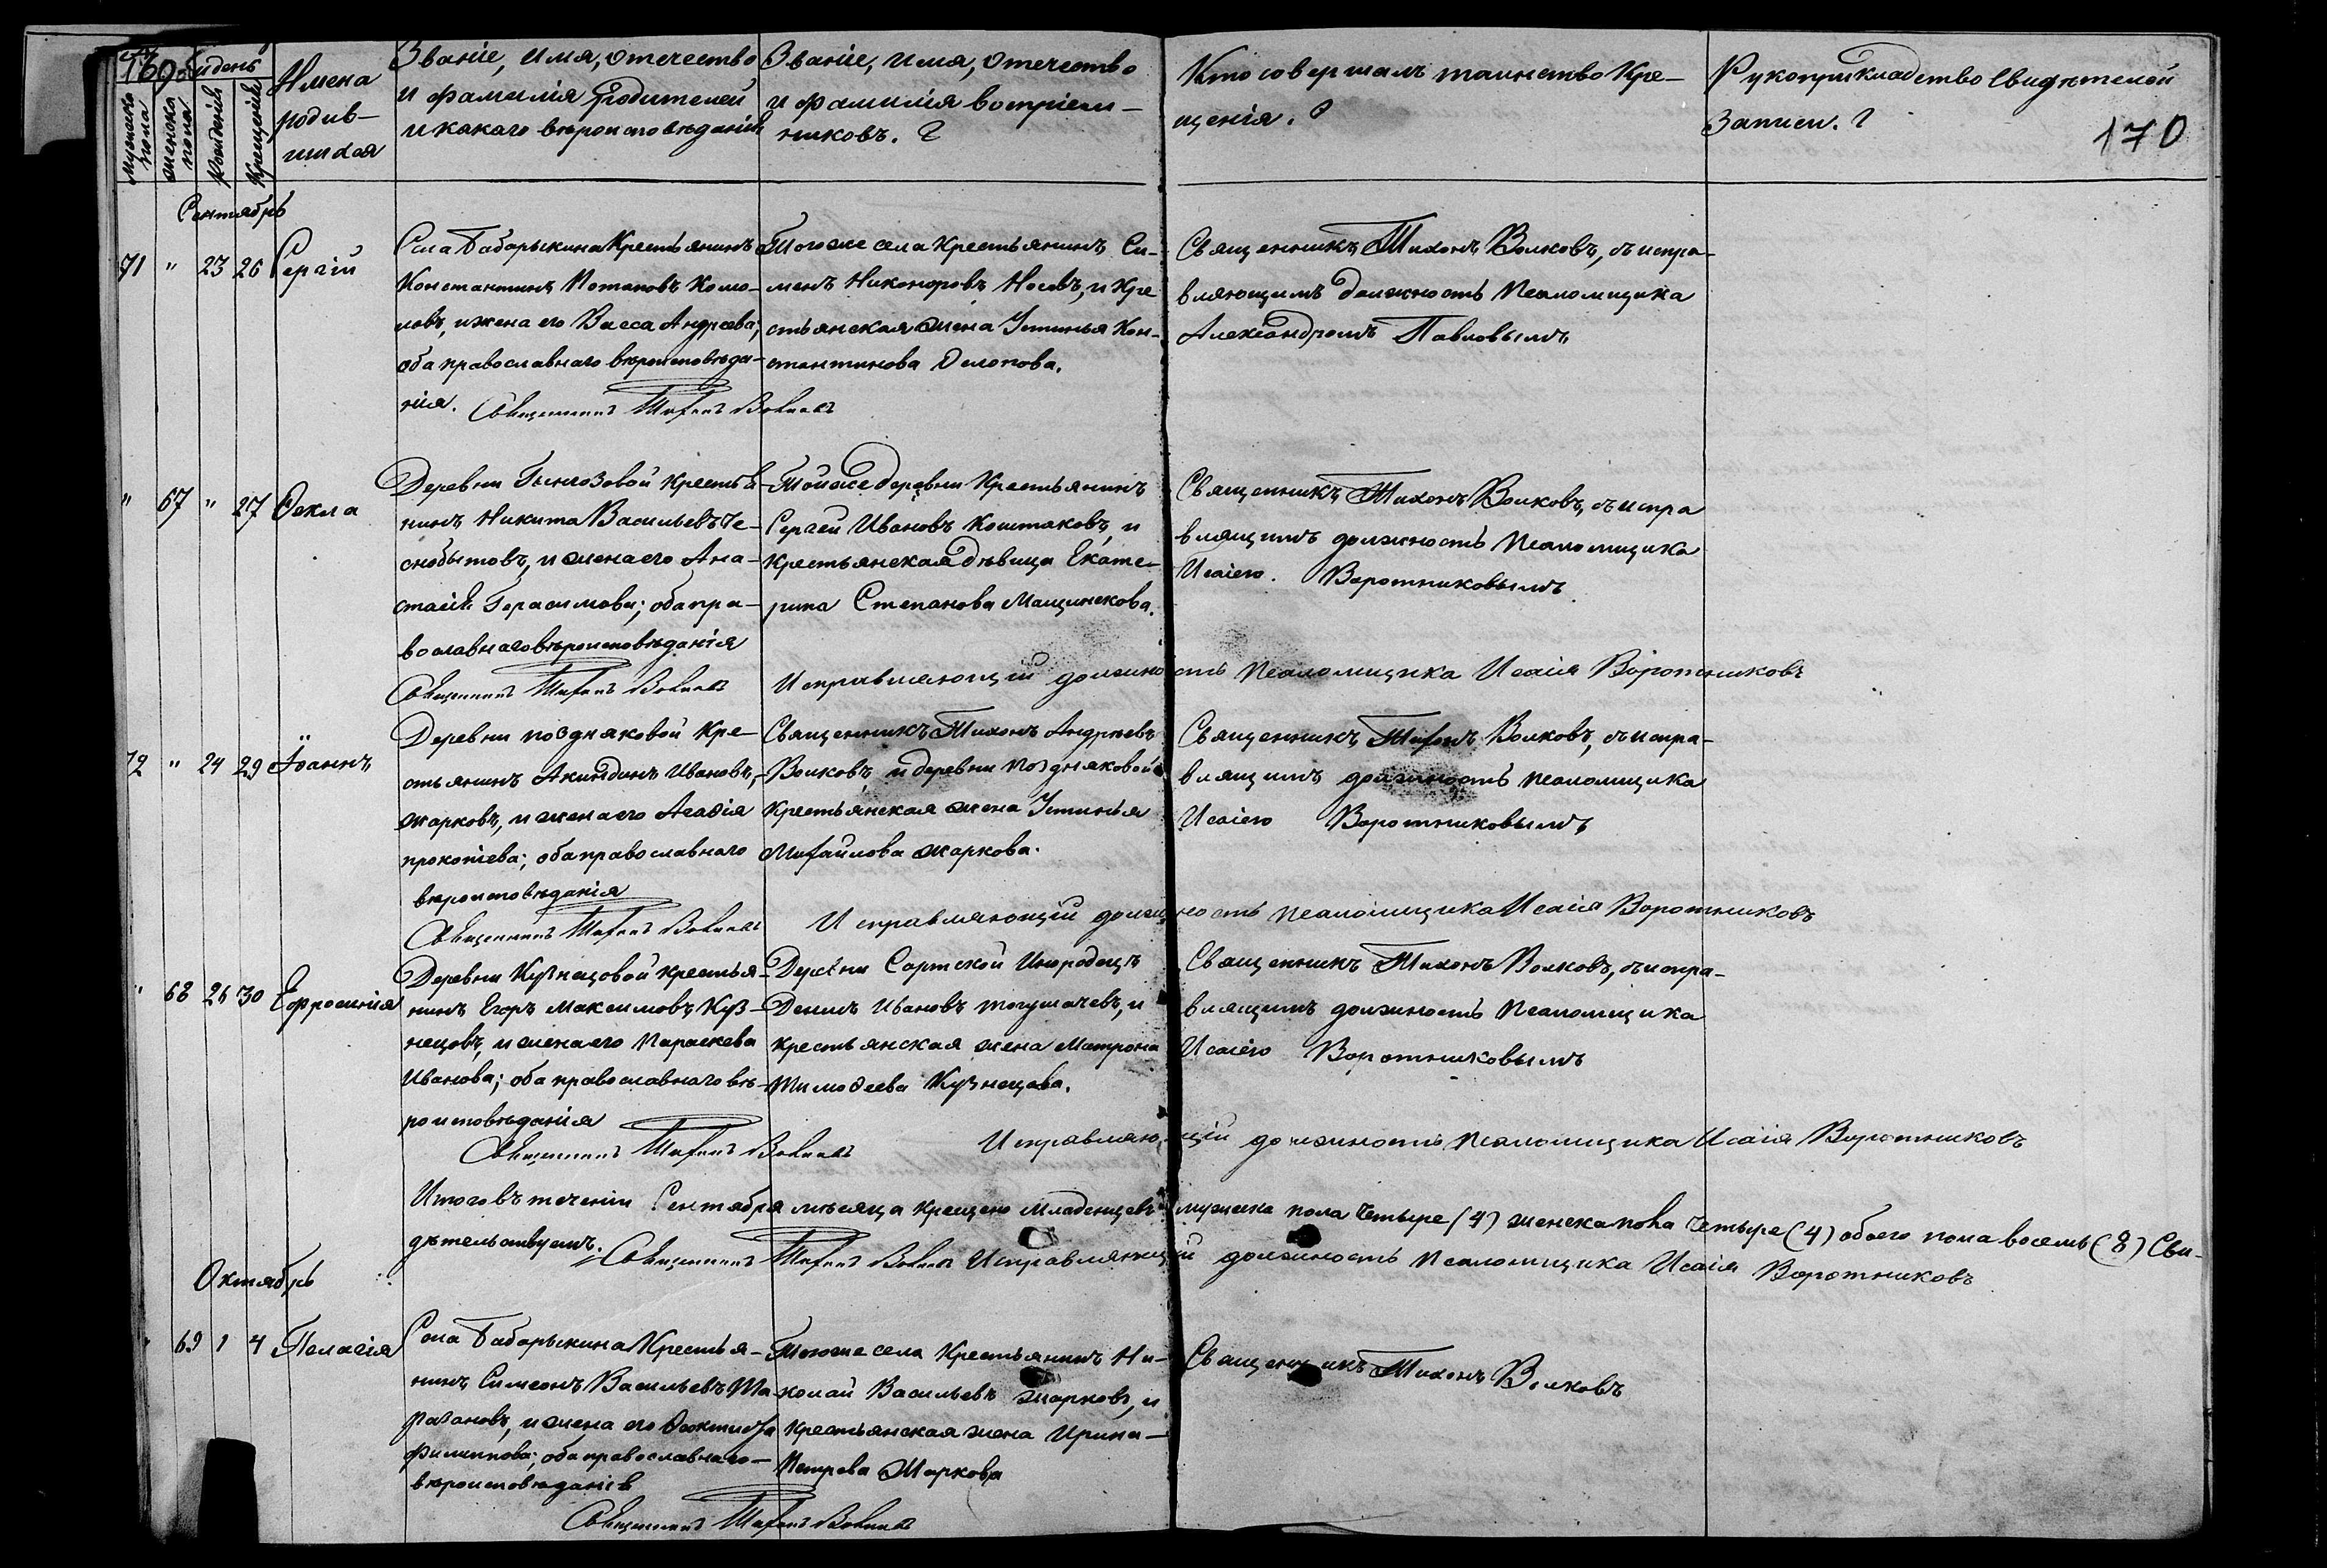 169 об и день
Имена
родив-
шихся
Мужска пола
женска пола
Рожденія
Крещенія
Званіе, имя, отечество
и фамилія Родителей
и какаго вѣроисповѣданія
Званіе, имя, отечество
и фамилія воспріем-
никовъ. ?
Кто совершалъ таинство Кре-
щенія. ?
Рукоприкладство Свидѣтелей
Записи. ?
170
Сентябрь
71 " 23 26 Сергій
Села Бабарыкина Крестьянинъ
Константинъ Потаповъ Комо-
ловъ, и жена его Васса Андреева;
оба православнаго вѣроисповѣда-
нія. Священникъ Тихонъ Волковъ
Тогоже села Крестьянинъ Си-
менъ Никоноровъ Носовъ, и Кре
стьянская жена Устинья Кон-
стантинова
Священникъ Тихонъ Волковъ, съ испра-
вляющимъ должность Псаломщика
Александромъ Павловымъ
" 67 " 27 Ѳекла
Деревни крестья
нинъ Никита Васильевъ Че-
снобытовъ, и жена его Ана-
стасія Герасимова; оба пра-
вославнаго вѣроисповѣданія
Священникъ Тихонъ Волковъ
Тойже деревни Крестьянинъ
Сергей Ивановъ Коштаковъ, и
Крестьянская дѣвица Екате-
рина Степанова Машинскова.
Священникъ Тихонъ Волковъ, съ испра
влящимъ должность Псаломщика
Исаіею. Воротниковымъ
Исправляющій должность Псаломщика Исаія Воротниковъ
72 " 24 29 Іоаннъ
Деревни поздняковой Кре-
стьянинъ Акиндинъ Ивановъ
жарковъ, и жена его Агафія
прокопіева; оба православнаго
вѣроисповѣданія
Священникъ Тихонъ Волковъ
Священникъ Тихонъ Андреевъ
Волковъ, и деревни поздняковой
Крестьянская жена Устинья
Михайлова жаркова.
Священникъ Тихонъ Волковъ, съ испра-
влящимъ должность псаломщика
Исаіею Воротниковымъ
Исправляющій должность Псаломщика Исаія Воротниковъ
" 68 26 30 Ефросинія
Деревни Кузнецовой крестья-
нинъ Егоръ Максимовъ Куз-
нецовъ, и жена его Параскева
Иванова; оба православнаго вѣ-
роисповѣданія
Священникъ Тихонъ Волковъ
Деревни Сортской Инородецъ
Ивановъ тогушачевъ, и
крестьянская жена Матрона
Тимофеева Кузнецова.
Священникъ Тихонъ Волковъ, съ испра-
влящимъ должность Псаломщика
Исаіею Воротниковымъ
Исправляющій должность Псаломщика Исаія Воротниковъ
Итого въ теченіи Сентября мѣсяца крещено младенцевъ мужска пола Четыре (4) женска пола Четыре (4) обоего пола восемь (8) Сви-
дѣтельствуемъ. Священникъ Тихонъ Волковъ Исправляющій должность Псаломщика Исаія Воротниковъ
Октябрь
" 69 1 4 Пелагія
Села Бабарыкина Крестья-
нинъ Симеонъ Васильевъ Та-
рагановъ, и жена его
Филиппова; оба православнаго-
вѣроисповѣданія
Священникъ Тихонъ Волковъ
Тогоже села Крестьянинъ Ни-
колай Васильевъ жарковъ, и
Крестьянская жена Ирина-
Петрова Жаркова
Священникъ Тихонъ Волковъ